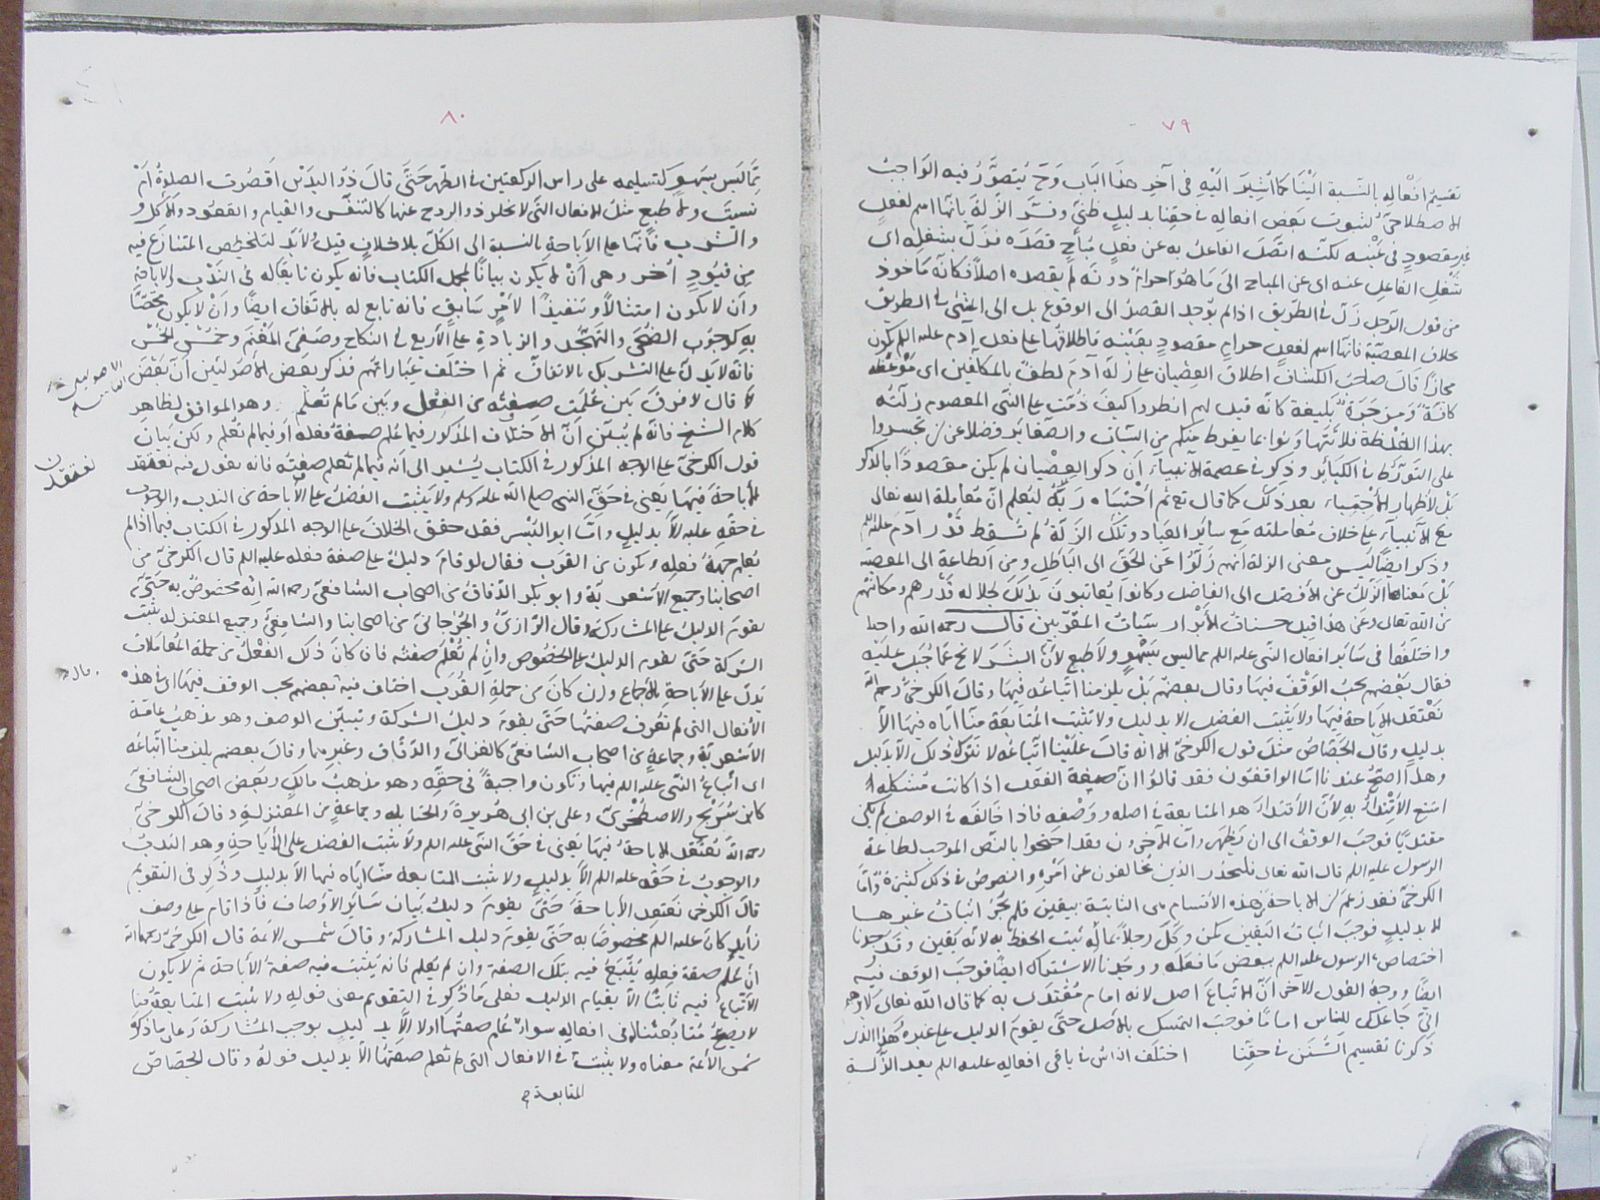 ٧٩
تقسيمُ افعاله بالنسبة الَيْنَا كما اُشِيَر الَيْهِ فى آخِر هذا البَاب وَحَ يُتصوَّرُ فيه الوَاجبُ
الاصطلاحىُّ لثبوت بَعْض افعاله فى حقِنا بدليلٍ ظنىٍّ وفسَّر الزلةَ بانّها اسم لفعلٍ
غير مقصودٍ فى عَيْنه لكنّه اتّصَلَ الفاعلُ به عن فعْلٍ مُبَاحٍ قصَدَه فزَلَّ بشغله اى
شُغْلِ الفاعلِ عنه اى عن المباح الىَ مَا هُوَ احرامٌ دونَه لم يقصده اصلاً فكانّه مَأخوذ
من قول الرَّجل زلَّ فى الطريق اذا لم يُوجد القصدُ الى الوقوع بل الى المشى فى الطريق
بخلاف المعصيّة فانّها اسم لفعلٍ حرامٍ مقصودٍ بعَيْنه فاطلاقُها على فعل آدم عليه اللم يكون
مجازًا قَالَ صَاحبُ الكشاف اطلاق العِصْيان على زلة آدمَ لطفٌ بالمكلّفين اى مَوْعظة
كافّة وَمزجَرَة بَليغة كانّه قيل لهم انظروا كيفَ نُعِتَ على النبى المعصوم زلّتُه
بهذا الغلظة فلا تتهاوَنوا بما يفرط منكم من السّيئات والصغائر فضلا عن ان تجسروا
على التّورّط فى الكبَائر وذكِر فى عصمة الانبياء أن ذكر العِصْيان لم يكن مقصودًا بالذكر
بَلْ لاظهار الاجتباء بعد ذلك كما قال تع ثم اجتبَاه ربّه ليُعلم انّ مُعاملة الله تعالى
مع الانبياء على خلاف مُعاملته مَع سائر العبَاد وتلك الزلة لم تُسقط قَدْرَ آدمَ عليه اللم
وذكر ايضًا لَيسَ معنى الزلة انهم زَلّوا عن الحَقّ الى البَاطل ومن الطاعة الى المعصيّة
بَلْ معناها الزلل عن الأفضل الى الفاضل وكانوا يُعاتبونَ بذلك لجلالة قَدْرهم ومكانتهم
من الله تعالى وعَن هذا قيل حسنات الأبْرار سيّئاتُ المقرّبين قالَ رحمه الله واحدا
واختلفوا فى سَائر افعال النّبى عليه اللم مما ليس بسَهْوٍ ولا طبع لأن البشر لا يخ عمّا جُبل عليْه
فقال بَعْضهم يجبُ الوَقْف فيها وقال بعضهم بَل يلزمنا اتّباعُه فيها وقالَ الكرخىُّ رحمه الله
نَعْتقد الابَاحة فيها ولا يَثبت الفضل الا بدليل ولا تثبت المتَابَعة منّا ايّاه فيها الاّ
بدليلٍ وقال الجَصّاصُ مثلَ قول الكرخىّ الا انه قالَ علَيْنا اتّباعُه لا نترُك ذلك الا بدليل
وهذا أصحّ عندنا امّا الواقفون فقد قالوُا انّ صفة الفعل اذا كانت مُشكلة
امتنع الاقتدَاءُ به لأنّ الاقتدَاءَ هو المتابعة فى اصله ووَصْفه فاذا خَالَفَه فى الوصف لم يكن
مقتديًا فوجَبَ الوقفُ الى ان يَظهر وامّا الآخرون فقد احتجوا بالنّص الموجب لطاعة
الرسول عليه اللم قال الله تعالى فليَحذر الذين يُخالفون عن أمره والنصوصُ فى ذلك كثيرة وامّا
الكرخىُّ فقد زعَم انّ الاباحة من هذه الاقسام هى الثابتة بيقين فلم يجُز اثباتُ غيرها
الا بدليلٍ فوجَبَ اثبات اليَقين كمن وكّل رجلاً بماله ثبت الحفظُ به لانّه يَقين وقد وجدنا
اختصاصَ الرسول عليه اللم ببعض مَا فعَله ووجَدنا الاشتراك ايضًا فوجَبَ الوقف فيه
ايضًا ووجهُ القول الآخر انّ الاتباعَ اصل لانه امامٌ مُقْتدًى به كما قال الله تعالى لابرهيم
انّى جَاعلُك للناس امامًا فوجَبَ التمسك بالاصل حتّى يقومَ الدليل على غيره وهذا الذى
ذكرنا تقسيم السُّنَن فى حقّنا اختلَف الناسُ فى باقى افعاله عليه اللم بعد الزّلة
٨٠
ممّا لَيسَ بسَهوٍ كتسليمه على راس الركعتين فى الظهر حَتّى قالَ ذُوا اليدَيْن اقصُرت الصلوةُ امْ
نسيتَ ولا طبعٍ مثلُ الافعال التى لا يخلو ذو الروح عنها كالتنفّس والقيام والقعُود والأكل و
والشّرب فانّها على الأباحة بالنسبة الى الكلّ بلا خلافٍ قيلَ ولابدّ لتلخيص المتنازَع فيه
مِن قيُودٍ أُخر وهى أنْ لا يكون بيانًا لمجمل الكتاب فانه يكون تابعًا له فى النَدْب والاباحة
وأن لا يكون امتثالاً وتنفيذًا لأمرٍ سَابقٍ فانه تابع له بالاتفاق ايضًا وأنْ لا يكونَ مختصًّا
به كوجُوب الضُحى والتّهجّد والزيادةِ على الأربع فى النكاح وصَفىِّ المَغْنم وخُمْس الخُمْس
فانّه لا يَدلّ على التشريك بالاتفاق ثم اختلَفَ عبَاراتهم فذكر بعض الأصوليّين أنّ بَعْضَ
قال لا فرقَ بَين مَا عُلمت صِفتُه من الفعْل وبَين مَا لم تُعلم وهو الموافق لظاهِر
كلام الشيخ فانّه لم يُبيّن انّ الاختلاف المذكور فيما عُلم صفةُ فعله او فيما لم تُعلم ولكن بيَان
قول الكرخىّ على الوجه المذكور فى الكتاب يُشير الى انّه فيما لم تُعلم صفتُه فانه يقول فيه نعتقد
الأباحةَ فيها يَعنى فى حَقّ النبى صلى الله عليه وسلم ولا يَثبت الفضلُ على الأباحة من الندب والوجُوب
فى حقّه عليه اللم الاّ بدليلٍ وامّا ابو اليُسر فقد حقق الخلافَ على الوجه المذكور فى الكتاب فيما اذا لم
يُعلم جهةُ فعله ويكون من القرَب فقال لو قامَ دليلٌ على صفة فعله عليه اللم قال الكرخىّ من
اصحابنا وجميع الأشعَريّة وابو بكر الدقّاقُ من اصحاب الشافعىّ رحمه الله انّه مخصُوصٌ به حتّى
يقومَ الدليلُ على المشاركة وقال الرّازىُّ والجُرجانىُّ من اصحابنا والشافعىُّ وجميع المعتزلة يثبت
الشركة حَتى يقومَ الدليلُ على الخصُوص وان لم تُعْلم صفته فان كانَ ذلك الفعْلُ من جملة المُعاملات
يَدلّ على الأباحة بالأجماع وان كانَ من جملة القُرَب اختلف فيه بعضهم يجب الوقف فيها اى فى هذه
الأفعال التى لم تُعرف صفتُها حَتّى يقومَ دليلُ الشركة وتبيّن الوصف وهو مذهبُ عامّة
الأشعريّة وجماعةٍ من اصحاب الشافعىّ كالغزالىّ والدّقّاق وغيرهما وقالَ بعضهم يلزمنا اتّباعُه
اى اتّباعُ النّبى عليه اللم فيها وتكون واجبةً فى حقّه وهو مذهبُ مالكٍ وبعض اصحاب الشافعىّ
كابن سُرَيْج والاصطخرىّ وعلى بن ابى هُريرة والحنابلة وجماعةٍ من المعتزلة وقال الكرخىُّ
رحمه الله نَعتقد الاباحة فيها يَعنى فى حَقّ النّبى عليه اللم ولا يثبت الفضل على الأباحةِ وهو النّدبُ
والوجوبُ فى حَقّه عليه اللم الاّ بدليلٍ ولا يثبت المتابعة منّا ايّاه فيها الا بدليلٍ وذُكر فى التقويم
قال الكرخى نعتقد الأباحةَ حَتى يقومَ دليلُ بيَان سَائر الأوصاف فاذا قام على وصف
زايدٍ كانَ عليه اللم مخصُوصًا به حَتّى يقوم دليلُ المشاركة وقالَ شمس الائمة قال الكرخىُّ رحمه الله
انْ عُلم صفة فعله يُتّبع فيه بتلك الصفة وان لم يُعلم فانه يَثبت فيه صفة الأباحة ثم لا يكون
الأتّباعُ فيه ثابتًا الاّ بقيام الدليل فعلى مَا ذُكر فى التقويم معنى قوله ولا يثبت المتابعةُ منّا
لا يصحّ مُتابعَتُنا له فى افعاله سواءٌ عُلم صفتُها اولا الاّ بدليل يوجب المُشاركة وعلى ما ذكر
شمس الأئمة معناه ولا يثبتُ فى الافعال التى لم تُعلم صفتُها الاّ بدليل قولهُ وقال الجَصّاصُ
المتابعة
الاصوليين
نعتقد